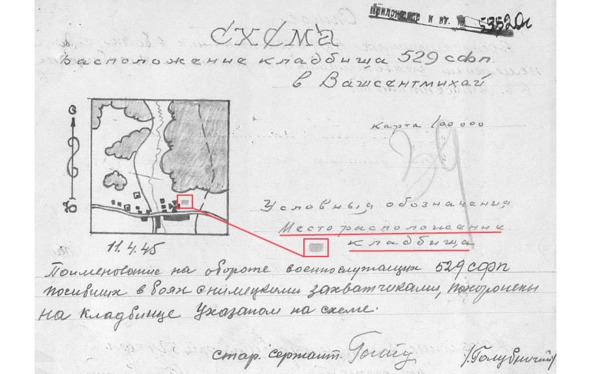 Приложение к вх. № 5352с
СХЕМА
расположение кладбища 529 сфп
в Вашсентмихай
карта 100 000
С
Ю
Условныя обозначения
Месторасположение
кладбища
11.4.45
Поименование на обороте военнослужащих 529 сфп
погибших в боях с нимецкими захватчиками, похоронены
на кладбище указаном на схеме.
стар. сержант
/Голубничий/